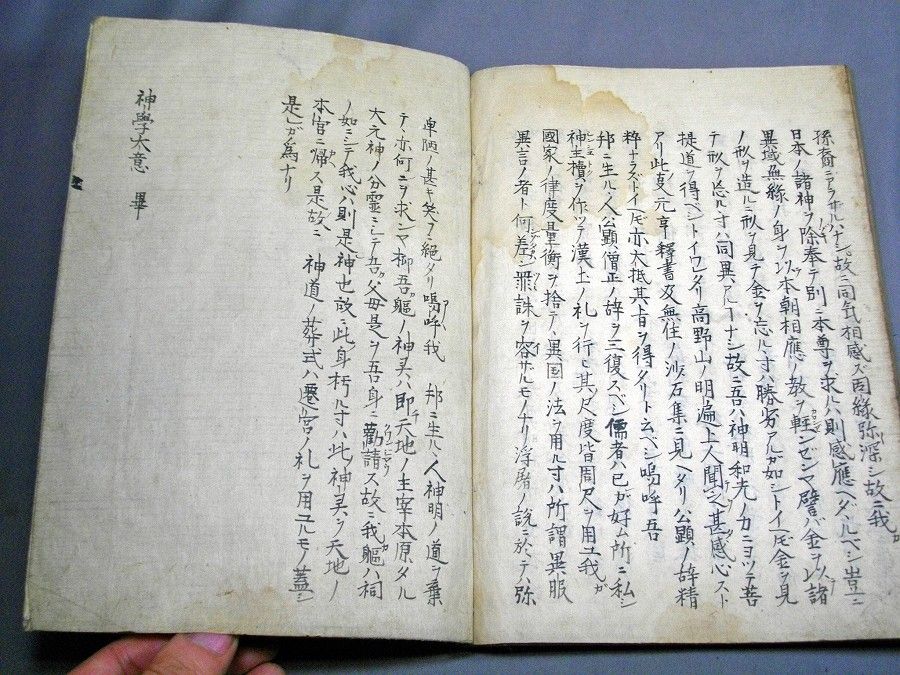 孫裔ニアラサルハナシ故ニ同気相感ズ因縁弥深シ故ニ我
日本ノ諸神ヲ除奉テ別ニ本尊ヲ求ルハ則感應ヘダルベシ豈ニ
異域無縁ノ身ヲ以本朝相應ノ教ヲ軽ンゼンマ譬バ金ヲ以諸
ノ形ヲ造ルニ形ヲ見テ金ヲ忘ルヽ寸ハ勝劣アルガ如シトイヘ𪜈金ヲ見
テ形ヲ忘ルヽ寸ハ同異アルヿナシ故ニ吾ハ神明和光ノ力ニヨツテ菩
提道ヲ得ベシトイワレタリ高野山ノ明遍上人聞之甚感心スト
アリ此夏元亨釋書及無住ノ沙石集ニ見ヘタリ公顕ノ辞精
粋ナラズトイヘ𪜈亦大抵其旨ヲ得タリト云ベシ嗚呼吾
邦ニ生ルヽ人公顕僧正ノ辞ヲ三復スベシ儒者ハ己ガ好ム所ニ私シ
神主櫝ヲ作ツテ漢土ノ礼ヲ行ヒ其尺度皆周尺ヲ用ユ我ガ
國家ノ律度量衡ヲ捨テ異国ノ法ヲ用ル寸ハ所謂異服
異言ノ者ト何差ン罪誅ヲ容サルモノナリ浮屠ノ説ニ於テハ弥
卑陋ノ甚キ笑フニ絶タリ嗚呼我 邦ニ生ルヽ人神明ノ道ヲ棄
テヽ亦何ニヲ求ンマ抑吾ガ軀ノ神灵ハ即チ天地ノ主宰本原タル
大元神ノ分霊ニシテ吾ガ父母是ヲ吾身ニ勸請ス故ニ我軀ハ祠
ノ如ニシテ我心ハ則是神也故ニ此身朽ル寸ハ此ノ神灵ヲ天地ノ
本宮ニ帰ス是故ニ 神道ノ葬式ハ遷宮ノ礼ヲ用ユルモノ蓋シ
是レガ為ナリ
神學大意 畢